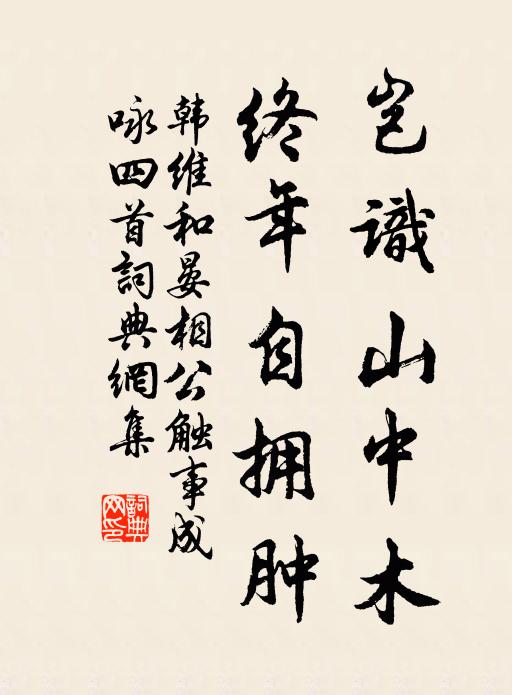 岂識山中木
终年自拥肿
韩维和晏相公触事成
咏四首詞典網集
詞典
网印